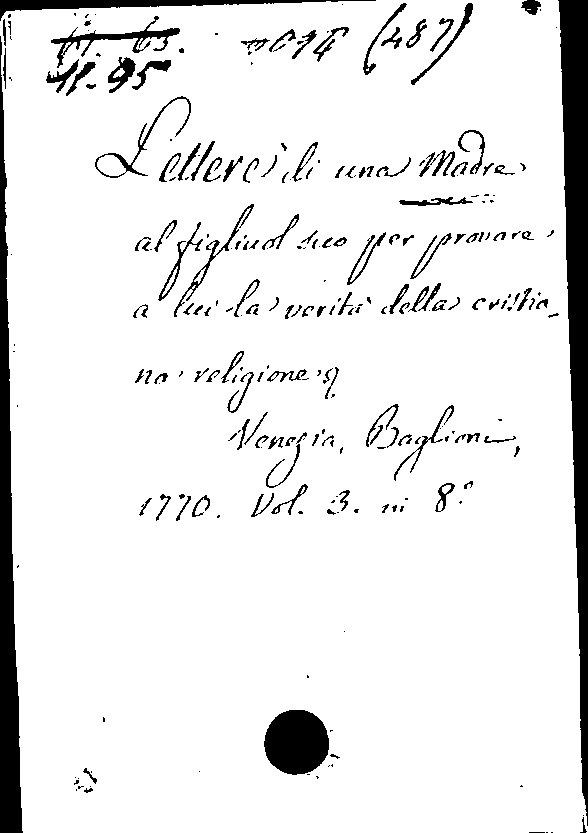 (487)
11-95
Lettere di una Madre
al figliuol suo per provare
a lui la verità della cristia_
na religione
Venezia, Baglioni,
1770. Vol. 3. in 8.º